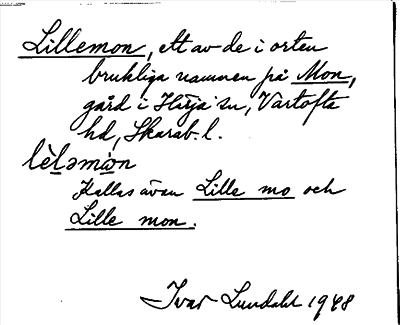 Lillemon, ett av de i orten
brukliga namnen på Mon,
gård i Härja sn, Vartofta
hd, Skarab. l.
lèləmàn
Kallas även Lille mo och
Lille mon.
Ivar Lundahl 1948